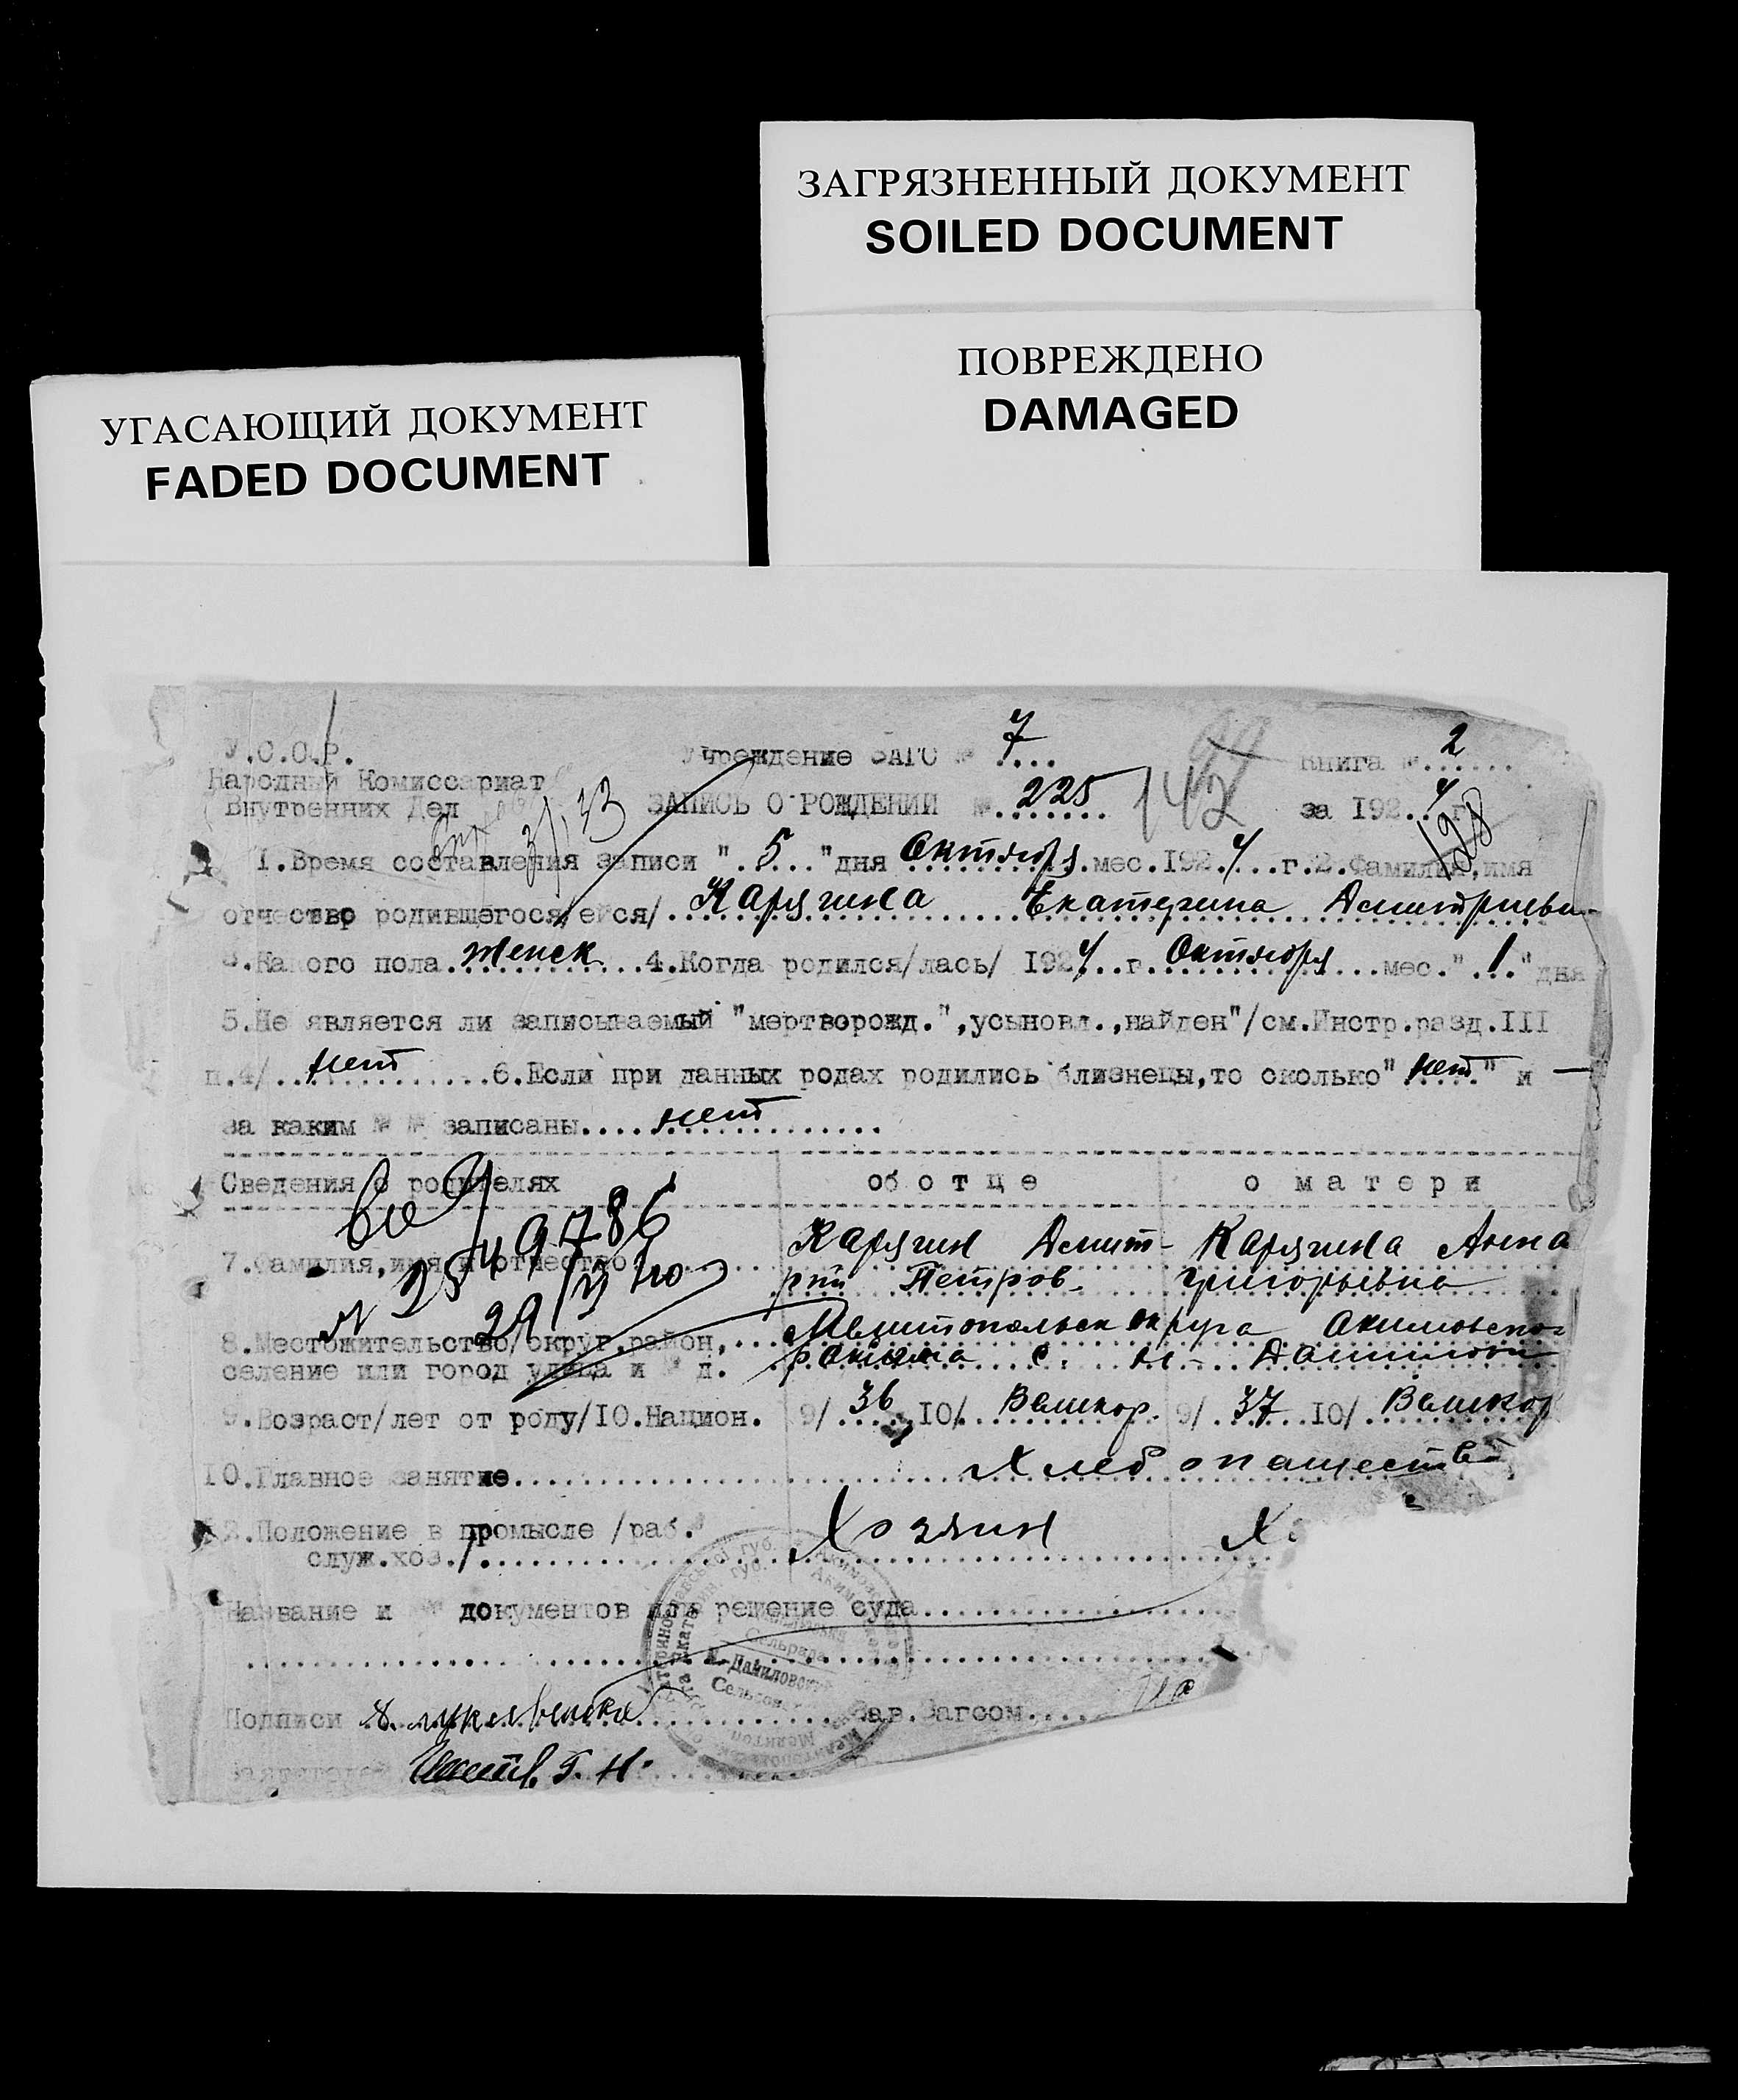 ЗАГРЯЗНЕННЫЙ ДОКУМЕНТ
SOILED DOCUMENT
ПОВРЕЖДЕНО
DAMAGED
УГАСАЮЩИЙ ДОКУМЕНТ
FADED DOCUMENT
У.С.С.Р. Учреждение ЗАГС № 7... Книга № 2
Народный Комиссариат
Внутренних Дел ЗАПИСЬ О РОЖДЕНИИ № 225 142 за 192 4 г.
128
1.Время составления записи ". 5..."дня Октября.мес.192.4...г.2.Фамилия,имя
отчество родившегося/ейся/. Карягина Екатерина Дмитриевна
3.Какого пола. женск 4.Когда родился/лась/ 1924..г. Октября ...мес.". 1."дня
5.Не является ли записываемый "мертворожд.",усыновл.,найден"/см.Инстр.разд.III
п.4/. нет 6.Если при данных родах родились близнецы,то сколько" нет" и —
за каким № № записаны.... нет
Сведения о родителях об отце о матери
7.Фамилия,имя и отчество Карягин Дмит- Карягина Анна
рий Петров. Григорьевна
8.Местожительство/округ,район,... Мелитопольск округа Акимовского
селение или город улица и № д. района с. Н- Даниловки
9.Возраст/лет от роду/10.Национ. 9/ 36 10/. Великор. 9/. 37 10/. Великор
10.Главное занятие... Хлебопашество
12.Положение в промысле /раб. Хозяин Х
служ.хоз./.
Название и № документов или решение суда
Сельрада
Н-Даниловский
Подписи Зав.Загсом
заявителей Г. Н.